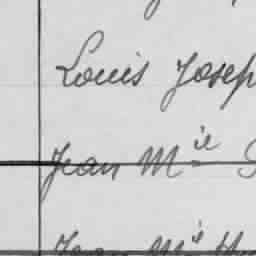 Louis Josep
Jean Mie
Jean Mie H